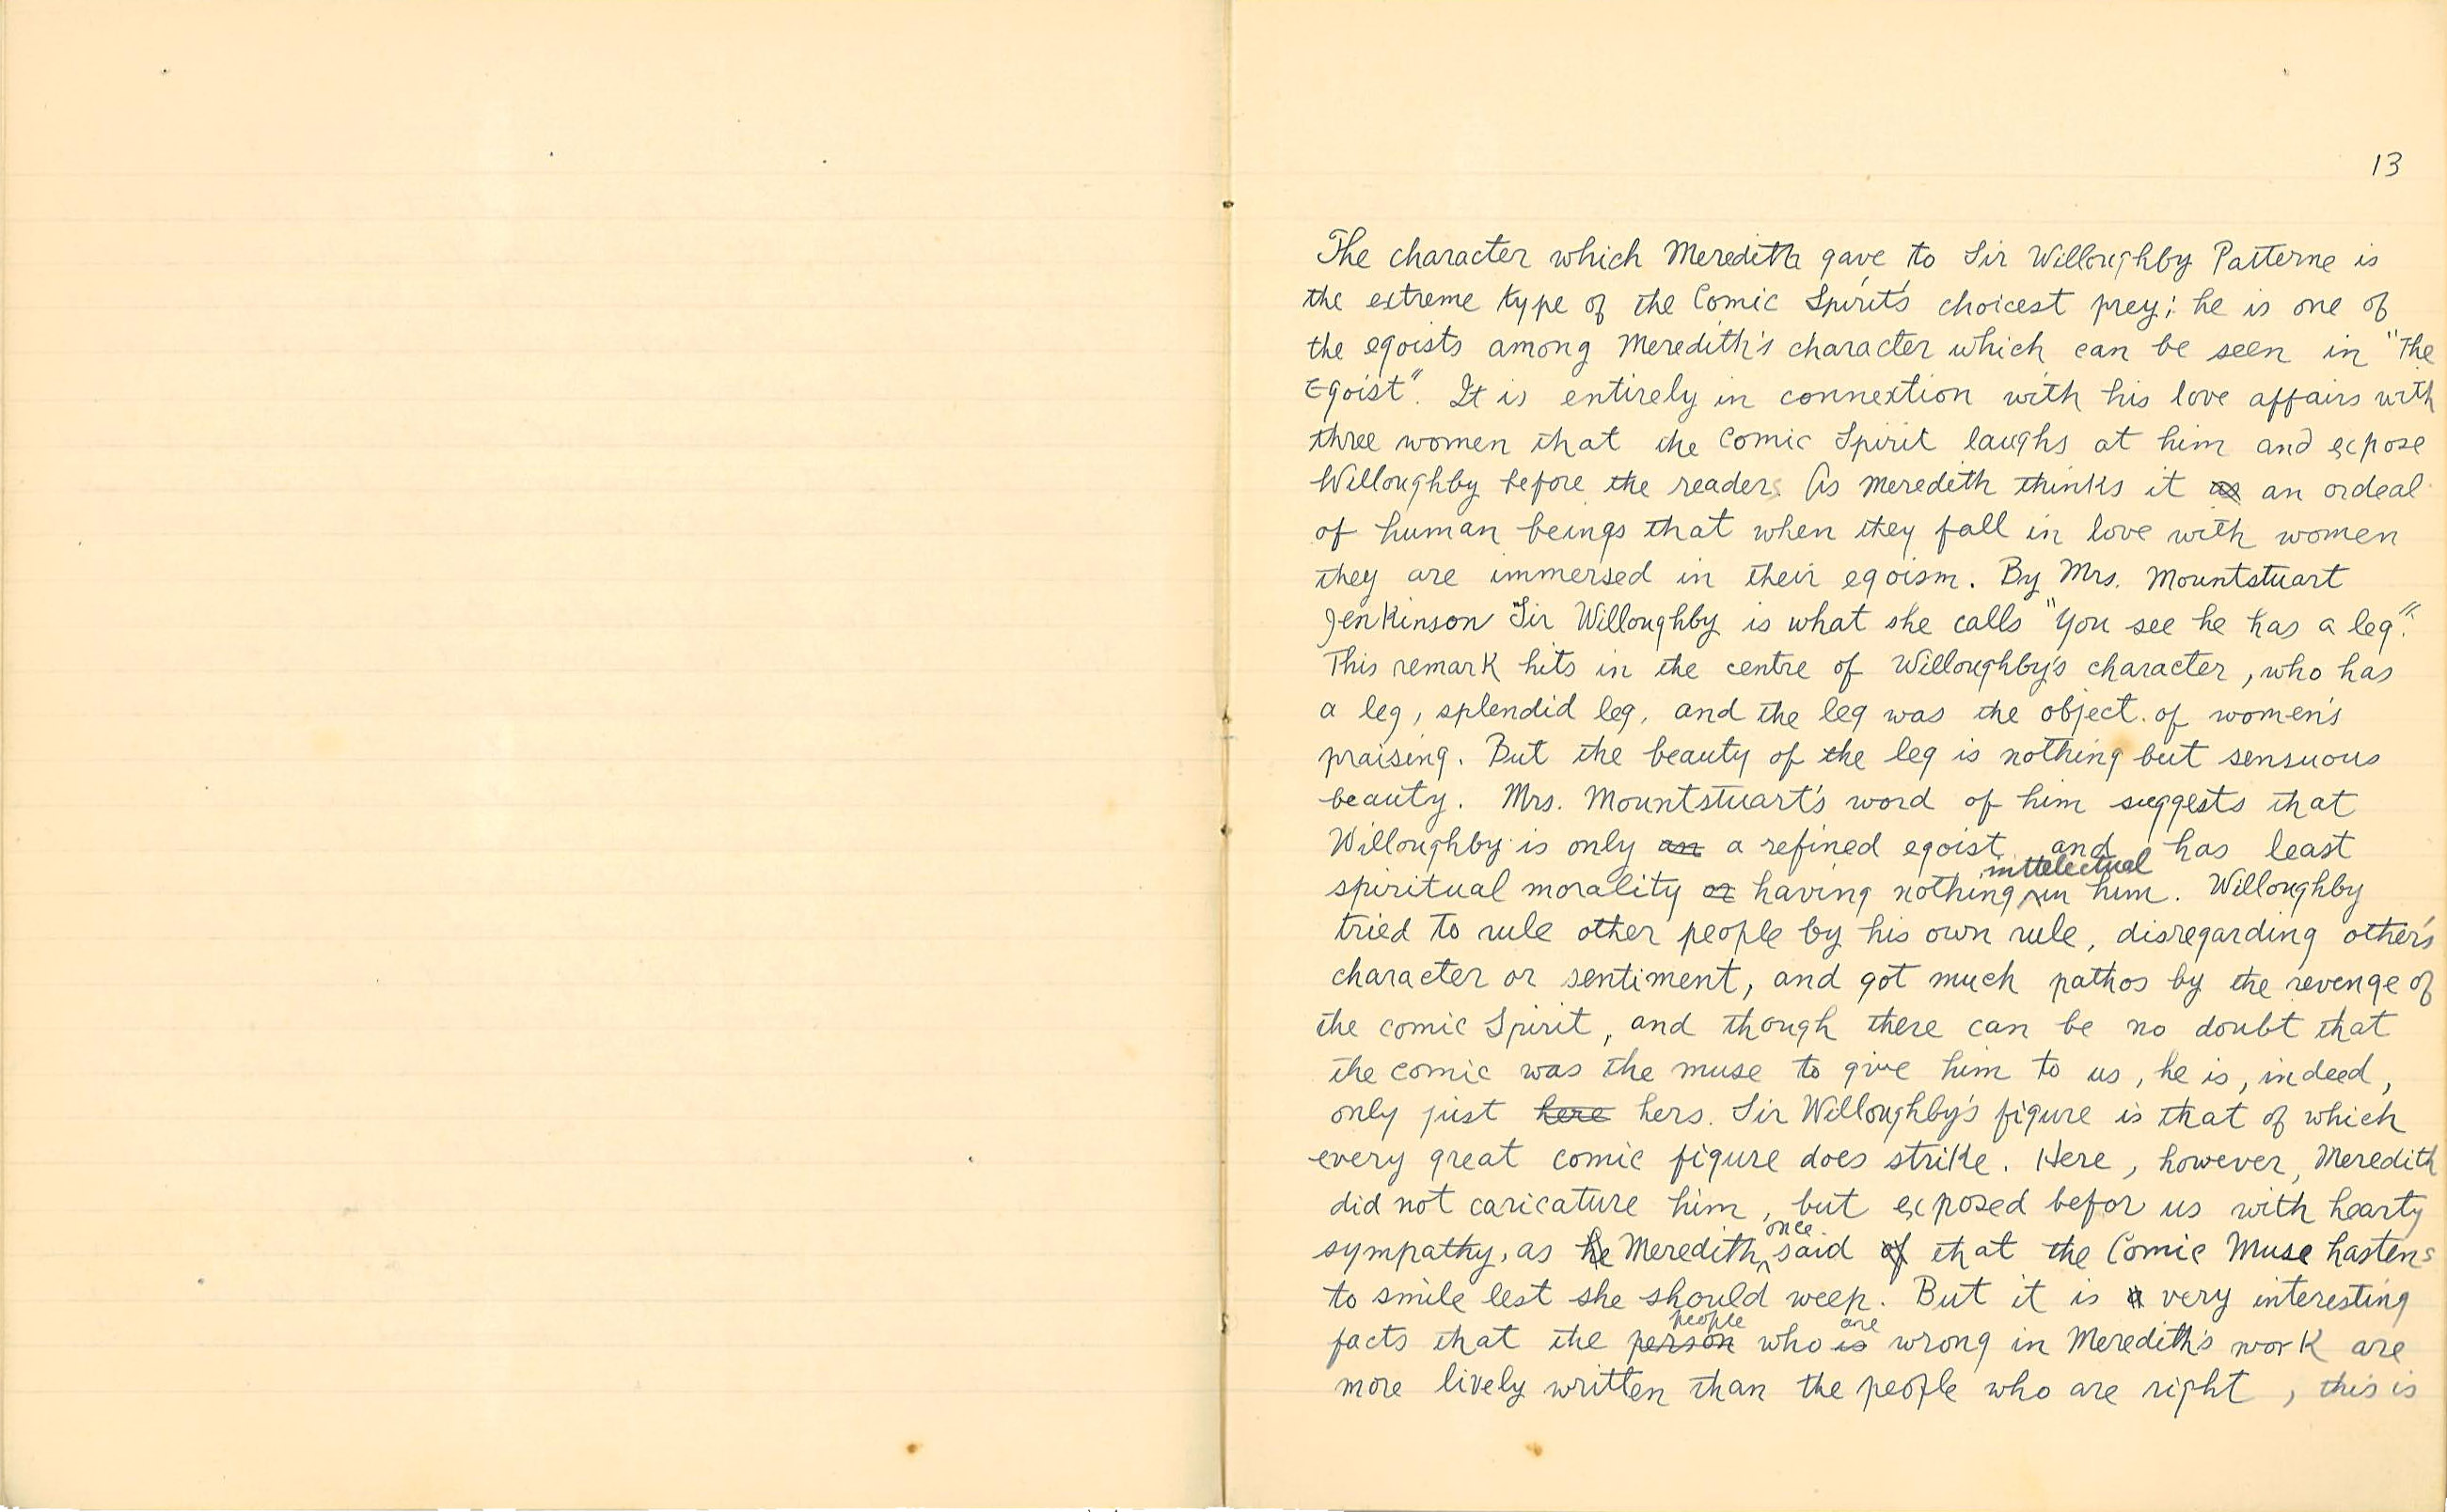 13
The character which Meredith gave to Sir Willoughby Patterne is
the extreme type of the Comic Spirit's choicest prey; he is one of
the egoists among Meredith's character which can be seen in "The
Egoist". It is entirely in connextion with his love affairs with
three women that the Comic Spirit laughs at him and expose
Willoughby before the readers. As Meredith thinks it as an ordeal
of human beings that when they fall in love with women
they are immersed in their egoism. By Mrs. Mountstuart
Jenkinson "Sir Willoughby is what she calls "You see he has a leg".
This remark hits in the centre of Willoughby's character, who has
a leg, splendid leg, and the leg was the object of women's
praising. But the beauty of the leg is nothing but sensuous
beauty. Mrs. Mountstuart's word of him suggests that
Willoughby is only an a refined egoist, and has least
spiritual morality or having nothing inttelectual in him. Willoughby
tried to rule other people by his own rule, disregarding other's
character or sentiment, and got much pathos by the revenge of
the comic Spirit, and though there can be no doubt that
the comic was the muse to give him to us, he is, indeed,
only just here hers. Sir Willoughby's figure is that of which
every great comic figure does strike. Here, however, Meredith
did not caricature him, but exposed befor us with hearty
sympathy, as he Meredith once said of that the Comic Muse hastens
to smile lest she should weep. But it is a very interesting
facts that the person people who is are wrong in Meredith's work are
more lively written than the people who are right, this is